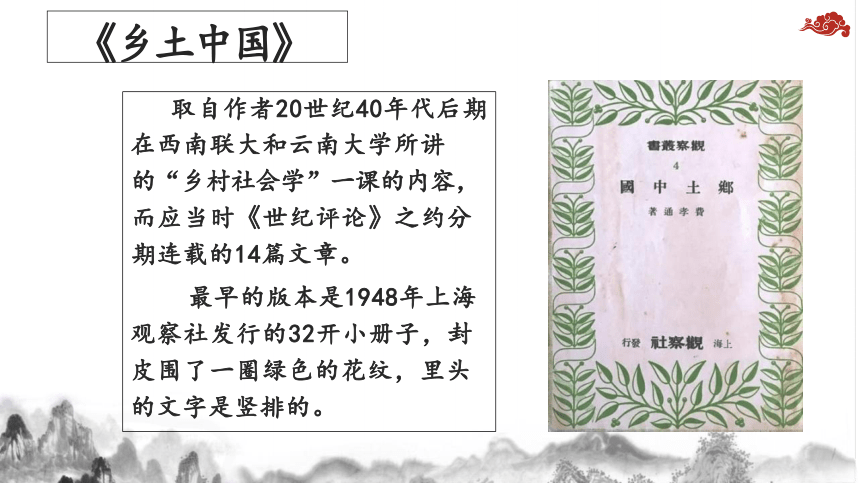 《乡土中国》
取自作者20世纪40年代后期
在西南联大和云南大学所讲
的“乡村社会学”一课的内容，
而应当时《世纪评论》之约分
期连载的14篇文章。
最早的版本是1948年上海
观察社发行的32开小册子，封
皮围了一圈绿色的花纹，里头
的文字是竖排的。
書叢察觀
4
國中土鄉
著通孝費
行發 社察觀 海上